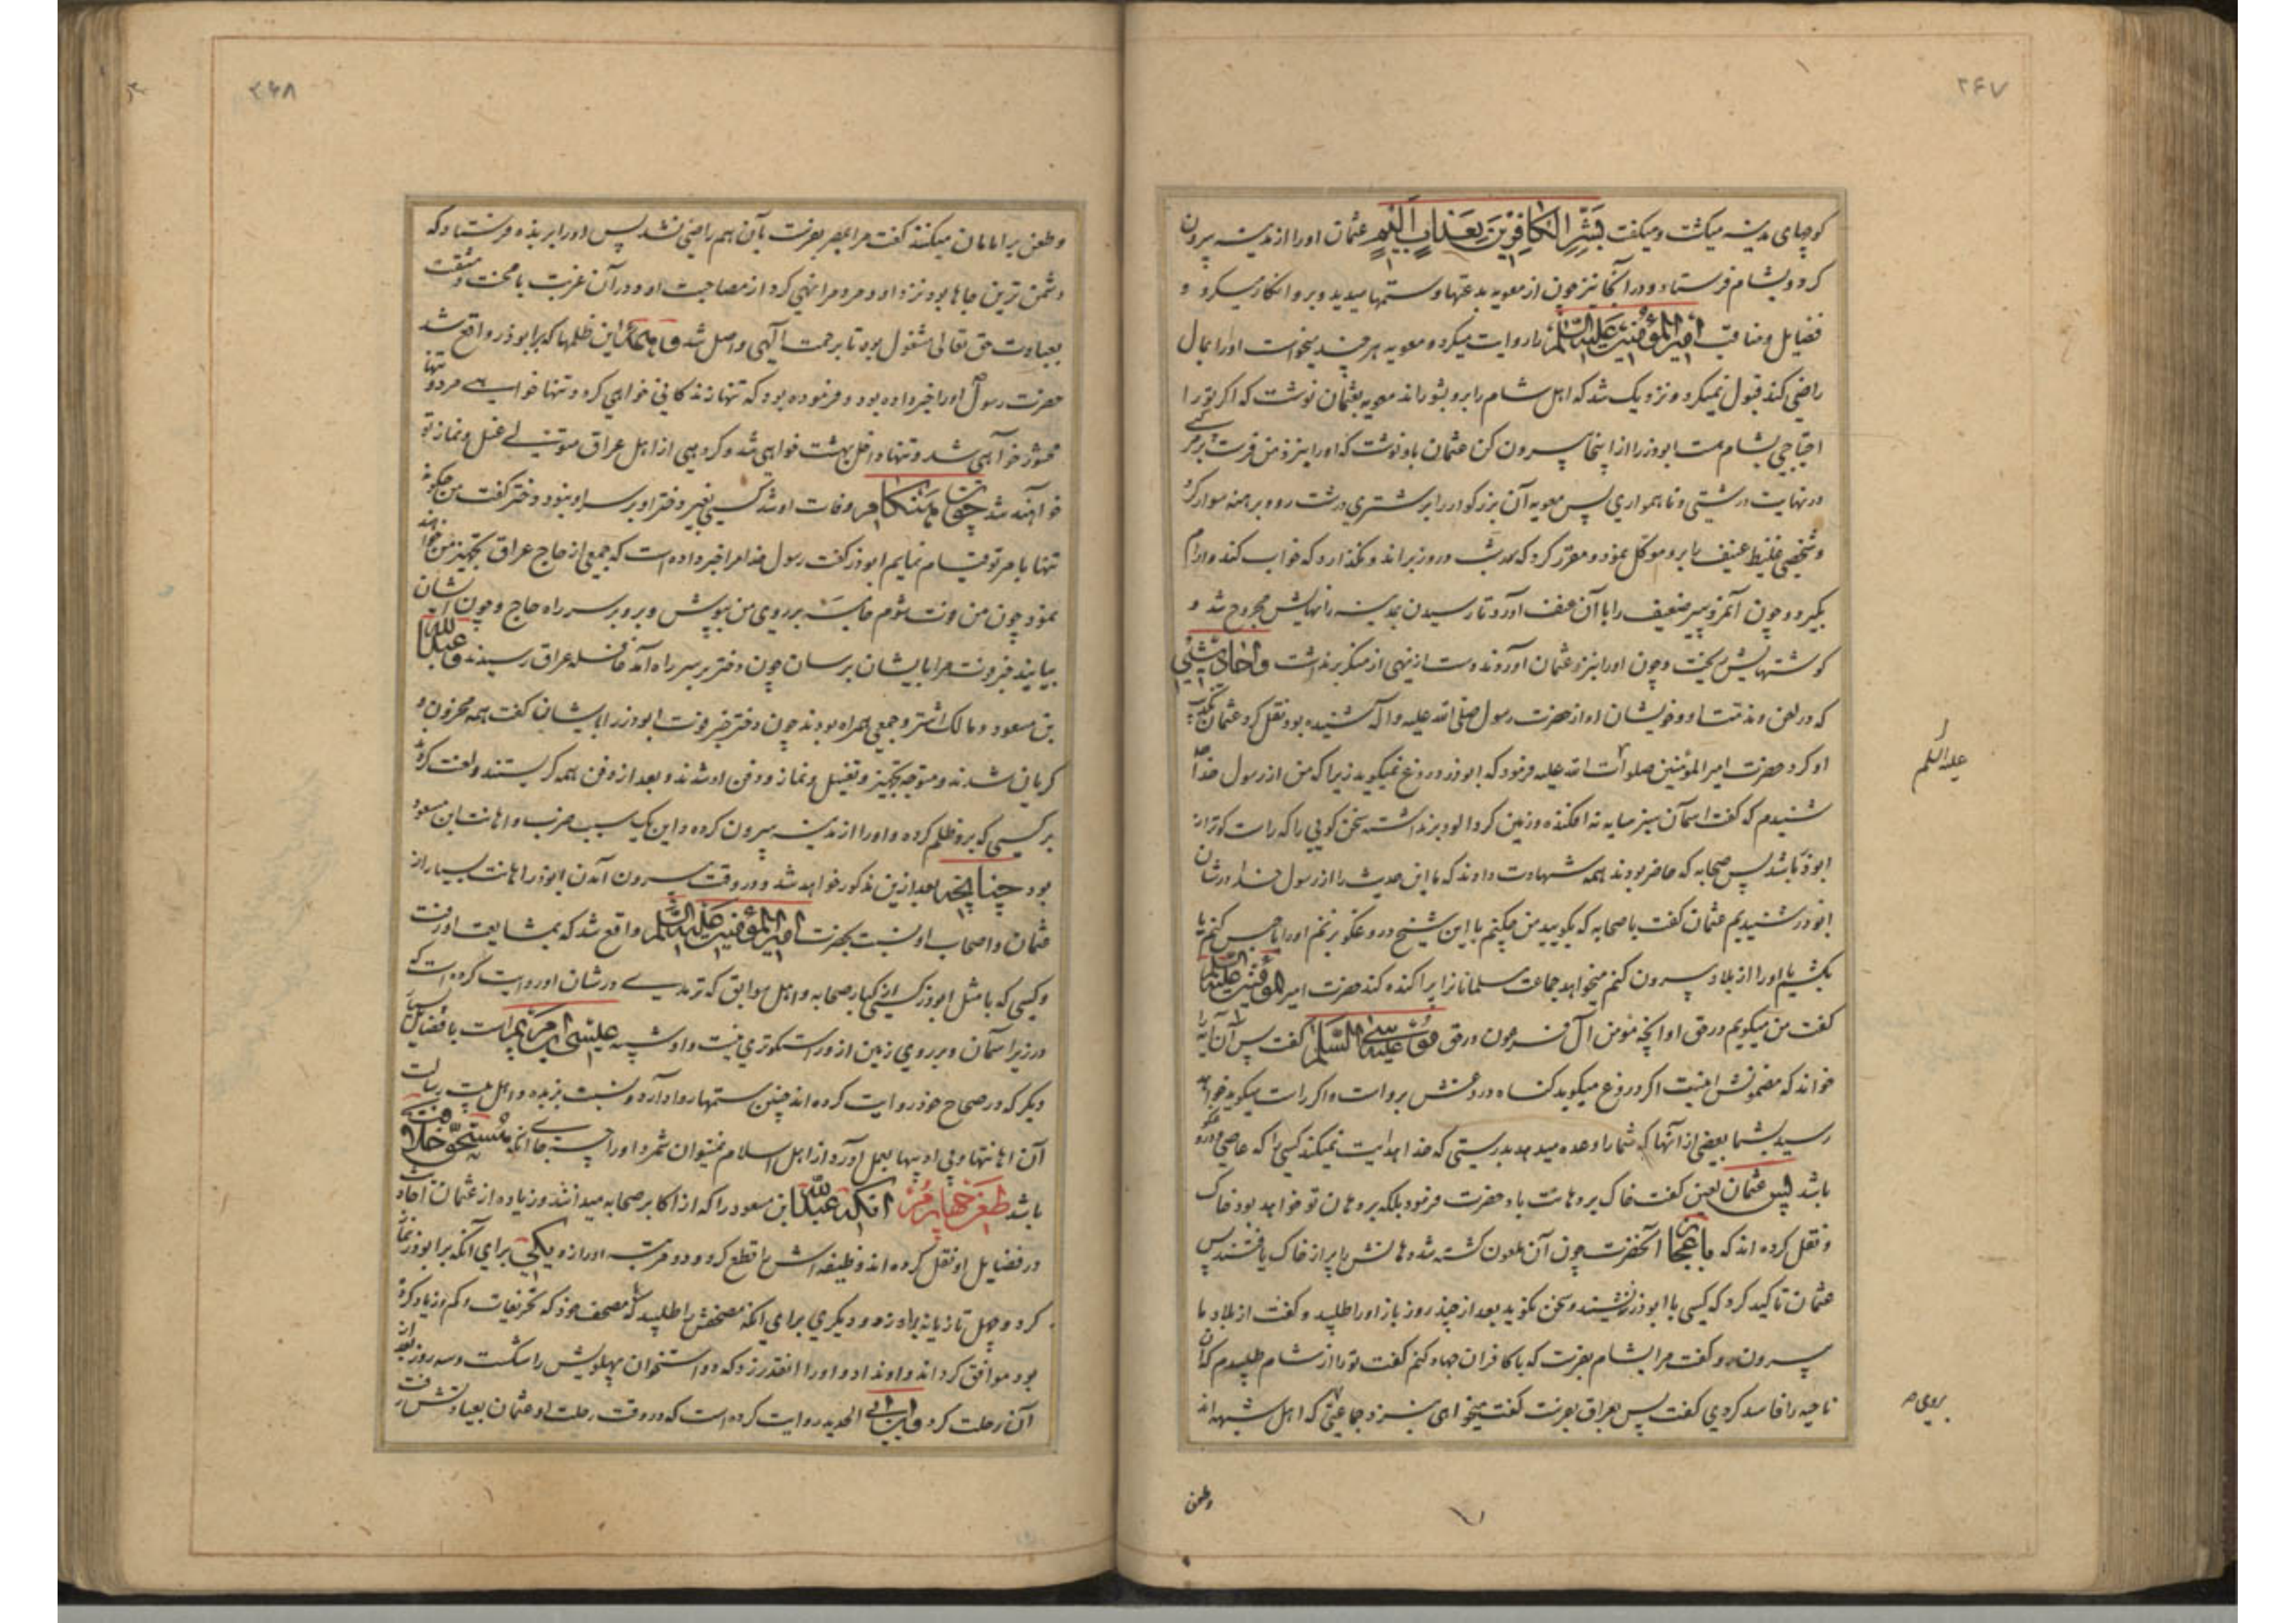 ۲۶۷
کوچهای مدینه میکشت و میکفت بَشِّرِ الْكافِرِينَ بِعَذابٍ أَلِيمٍ عثمان او را از مدینه بیرون
کرد و بشام فرستاد و در آنجا نیز چون از معویه بدعتها و ستمها میدید و برو انکار میکرد و
فضایل و مناقب امیر المؤمنین علیه السلم را روایت میکرد و معویه هر چند میخواست او را بمال
راضی کند قبول نمیکرد و نزدیک شد که اهل شام را برو بشوراند معویه بعثمان نوشت که اکر تو را
احتیاجی بشام هست ابوذر را از اینجا بیرون کن عثمان باو نوشت که او را بنزد من فرست بر مرکبی
در نهایت درشتی و ناهمواری پس معویه آن بزرکوار را بر شتری درشت رو و برهنه سوار کرد
و شخصی غلیظ عنیف را برو موکل نمود و مقرر کرد که شب و روز براند و نکذارد که خواب کند و آرام
بکیرد و چون آنمرد پیر ضعیف را با آن عنف آورد تا رسیدن بمدینه رانهایش مجروح شد و
کوشتهایش ریخت و چون او را بنزد عثمان آوردند دست از نهی از منکر برنداشت و احادیثی
که در لعن و مذمت او و خویشان او از حضرت رسول صلی الله علیه و آله شنیده بود نقل کرد عثمان تکذیب
او کرد حضرت امیر المؤمنین صلوات الله علیه فرمود که ابوذر دروغ نمیکوید زیرا که من از رسول خدا
علیه السلم
شنیدم که کفت اسمان سبز سایه نه افکنده و زمین کرد الود برنداشته سخن کویی را که راست کوتر از
ابوذر باشد پس صحابه که حاضر بودند همه شهادت دادند که ما این حدیث را از رسول خدا در شان
ابوذر شنیدیم عثمان کفت با صحابه که بکویید من چکنم با این شیخ دروغکو بزنم او را یا حبس کنم یا
بکشم یا او را از بلاد بیرون کنم میخواهد جماعت مسلمانان را پراکنده کند حضرت امیر المؤمنین علیه السلم
کفت من میکویم در حق او آنچه مؤمن آل فرعون در حق موسی علیه السلم کفت پس آن آیه را
خواند که مضمونش اینست اکر دروغ میکوید کناه دروغش بر اوست و اکر راست میکوید خواهد
رسید بشما بعضی از آنها که شما را وعده میدهد بدرستی که خدا هدایت نمیکند کسی را که عاصی و دروغکو
باشد پس عثمان لعین کفت خاک بر دهانت باد حضرت فرمود بلکه بر دهان تو خواهد بود خاک
و نقل کرده اند که باعجاز آنحضرت چون آن ملعون کشته شد دهانش را پر از خاک یافتند پس
عثمان تاکید کرد که کسی با ابوذر ننشیند و سخن نکوید بعد از چند روز باز او را طلبید و کفت از بلاد ما
بیرون رو کفت مرا بشام بفرست که با کافران جهاد کنم کفت تو را از شام طلبیدم که آن
ناحیه را فاسد کردی کفت پس بعراق بفرست کفت میخواهی بنزد جماعتی که اهل شبهه اند
بروی
وطعن
۲۶۸
وطعن بر امامان میکنند کفت مرا بمصر بفرست بآن هم راضی نشد پس او را بربذه فرستاد که
دشمن ترین جاها بود نزد او و مردم را نهی کرد از مصاحبت او و در آن غربت با محنت و مشقت
بعبادت حق تعالی مشغول بود تا برحمت الهی واصل شد و این ظلمها که بر ابوذر واقع شد
حضرت رسول ص او را خبر داده بود و فرموده بود که تنها زندکانی خواهی کرد و تنها خواهی مرد و تنها
محشور خواهی شد و تنها داخل بهشت خواهی شد و کروهی از اهل عراق متوجه غسل و نماز تو
خواهند شد چون هنکام وفات او شد کسی بغیر دختر او بر سر او نبود دختر کفت من چکونه
تنها بامر تو قیام نمایم ابوذر کفت رسول خدا مرا خبر داده است که جمعی از حاج عراق تجهیز من خواهند
نمود چون من فوت شوم جامه بر روی من بپوش و برو بر سر راه حاج و چون ایشان
بیایند خبر فوت مرا بایشان برسان چون دختر بر سر راه آمد قافله عراق رسیدند و عبد الله
بن مسعود و مالک اشتر و جمعی همراه بودند چون دختر خبر فوت ابوذر را بایشان کفت همه محزون و
کریان شدند و متوجه تجهیز و تغسیل و نماز و دفن او شدند و بعد از دفن همه کریستند و لعنت کردند
بر کسی که برو ظلم کرده و او را از مدینه بیرون کرده و این یک سبب ضرب و اهانت ابن مسعود
بود چنانچه بعد ازین مذکور خواهد شد و در وقت بیرون آمدن ابوذر اهانت بسیار از
عثمان و اصحاب او نسبت بحضرت امیر المؤمنین علیه السلم واقع شد که بمشایعت او رفت
و کسی که با مثل ابوذر کسی از کبار صحابه و اهل سوابق که ترمدی در شان او روایت کرده است که
در زیر آسمان و بر روی زمین از و راستکوتری نیست و او شبیه عیسی بن مریم است با فضایل بسیار
دیکر که در صحاح خود روایت کرده اند چنین ستمها روا دارد و نسبت بزبده و اهل بیت رسالت
آن اهانتها و بی ادبیها بعمل آورد از اهل اسلام نمیتوان شمرد او را چه جای آنکه مستحق خلافت
باشد طعن چهارم آنکه عبد الله ابن مسعود را که از اکابر صحابه میدانند و زیاده از عثمان احادیث
در فضایل او نقل کرده اند وظیفه اش را قطع کرد و دو مرتبه او را زد یکی برای آنکه بر ابوذر نماز
کرد و چهل تازیانه براو زد و دیکری برای آنکه مصحفش را طلبید که با مصحف خود که تحریفات و کم و زیاد کرده
بود موافق کرداند و او نداد و او را آنقدر زد که دو استخوان پهلویش را شکست و سه روز بعد از
آن رحلت کرد و ابن ابی الحدید روایت کرده است که در وقت رحلت او عثمان بعیادتش رفت